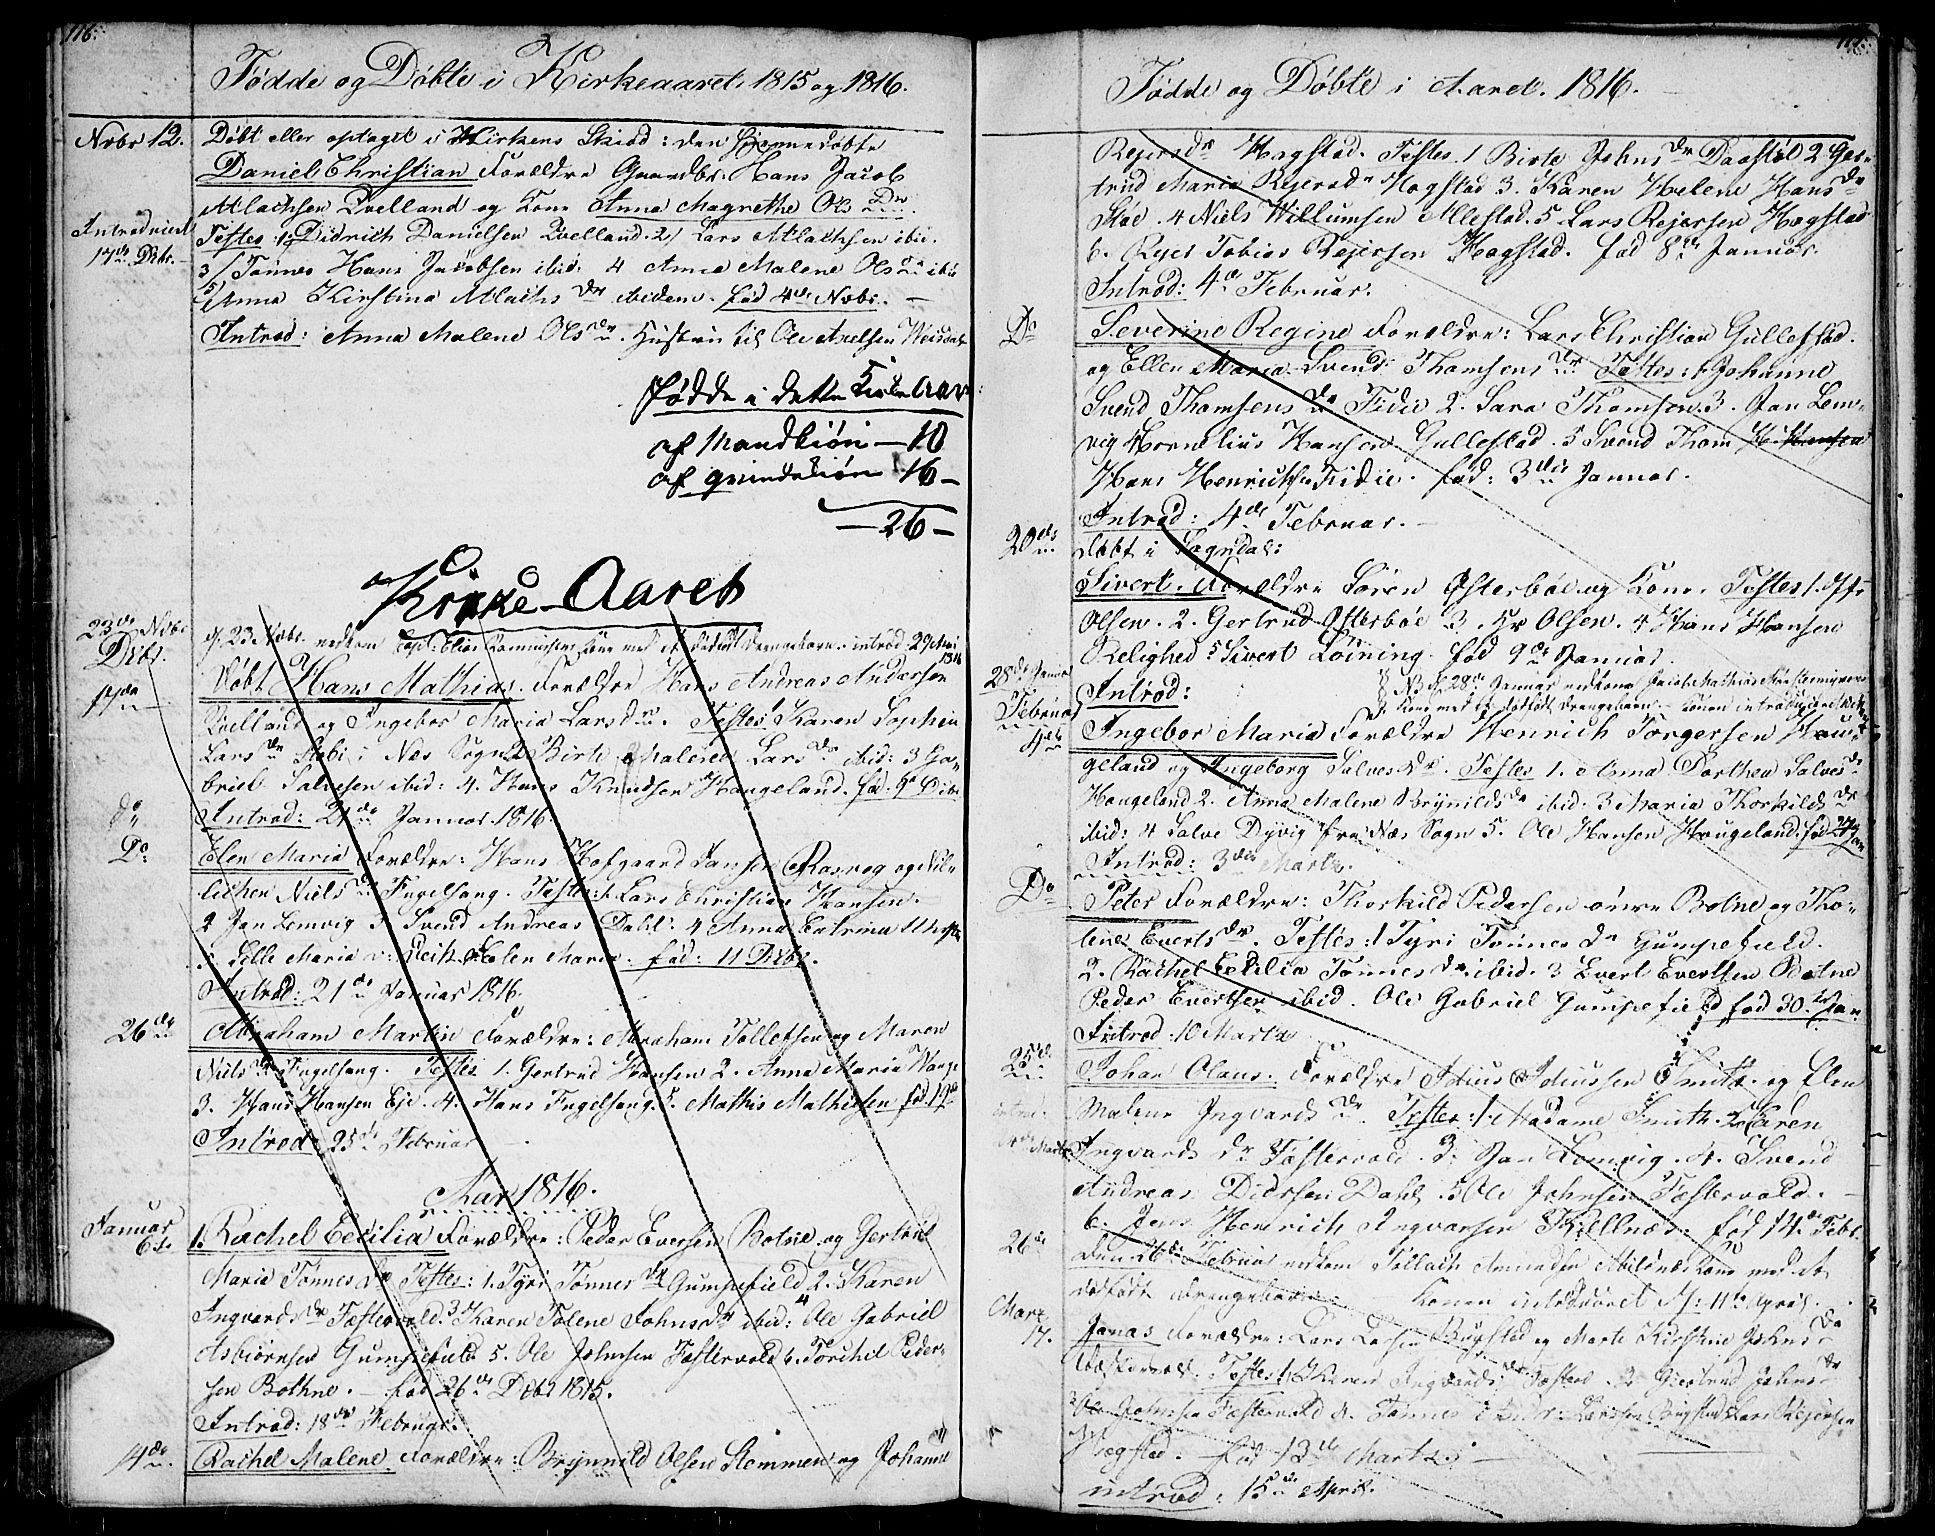 116.
Fødde og Døbte i Kirkeaaret 1815 og 1816.
Novbr 12. Døbt eller optaget i Kirkens Skiød: den hjemmedøbte
Daniel Christian Forældre Gaardbr. Hans Jacob
Atlachsen Qvelland og Kone Anna Magrethe Ols Dr
Introduceret Testes: 1 Didrich Danielsen Qvelland 2/ Lars Atlachsen ibid.
17de Dbr. 3/ Tønnes Hans Jacobsen ibid: 4 Anna Malene Olsdr ibid
5/ Anna Kirstina Atlachsdr ibidem. fød 4de Novbr.
Introd: Anna Malene Olsdr. Hustru til Ole Axelsen
Fødde i dette Kirke Aar:
af Mandkiøn – 10
af qvindekiøn 16 –
– 26 –
Kirke-Aaret
23de Novbr. d. 23 Novbr. nedkom Kone med et dødfødt Drengebarn. introd.
1816
Decbr. Døbt Hans Mathias. Forældre Hans Andreas Andersen
17de Qvelland og Ingebor Maria Larsdr. Testes 1 Karen Sophia
Larsdr i Næs Sogn 2 Birte Malene Larsdr ibid: 3 Ga-
briel Salvesen ibid: 4. Hans Knudsen Haugeland. fød. 9de Dcbr
do Introd: 21de Januar 1816.
Do Elen Maria Forældre: Hans Hofgaard Jansen Rasvog og
Nielsdr Fugelsang. Testes: 1. Lars Christian Hansen.
2 Jan Lemvig 3 Svend Andreas Dahl. 4 Anna Catrina
5 Sille Maria Elen Maria. fød: 11 Dcbr.
Introd: 21de Januar 1816.
26de Abraham Martin Forældre: Abraham Tollefsen og Maren
Nielsdr Fugelsang. Testes 1. Gertrud Hansen 2. Anna Maria
3. Hans Hansen Eje. 4. Hans Fugelsang. 5. Mathis Mathissen fød. 19de
Introd: 25de Februar
Aar 1816.
Januar
6te 1. Rachel Cecilia Forældre: Peder Eversen Botne og Gertrud
Maria Tønnesdr Testes: 1. Tyri Tønnesdr Gumpefield 2. Karen
Ingvardsdr Fæstervold. 3 Karen Tolene Johnsdr ibid: 4 Ole Gabriel
Asbiørnsen Gumpefield 5. Ole Johnsen Fæstervold 6. Torchel Peder-
sen Bothne. – fød 26de Decbr 1815.
Introd: 18de Februar.
14de Rachel Malene Forældre: Brynnild Olsen Stemmen og Johanne
117.
Fødde og Døbte i Aaret 1816.
Rejersdr Hogstad. Testes. 1 Birte Johnsdr Daastøl 2 Ger-
trud Maria Rejersdr Hogstad 3. Karen Helene Hansdr
4 Niels Willumsen Allestad. 5 Lars Rejersen Hogstad
6. Rejer Tobias Rejersen Hogstad. fød 8de Januar.
Introd: 4de Februar.
Do Severine Regine Forældre: Lars Christian Gullefstad.
og Ellen Maria Svend Thomsensdr Testes: 1 Johanne
Svend Thomsensdr Fidie 2. Sara Thomsen 3. Jan Lem-
vig 4 Cornelius Hansen Gullestad. 5 Svend Thom
Hans Henrichsen Fidie. fød: 3die Januar.
Introd: 4de Februar. –
20de døbt i Sogndal:
Sivert. Forældre Søren Østerbøe og Kone. Testes 1.
Olsen. 2. Gertrud Østerbøe 3. Olsen. 4 Hans Hansen
Relighed 5 Sivert Løining. fød 9de Januar.
28de Januar Introd: NB d. 28de Januar nedkom Jacob Mathias
Kone med et dødfødt Drengebarn. – Konen introduceret
Februar
4de Ingebor Maria Forældre Henrich Torgersen Hau-
geland og Ingeborg Salvesdr. Testes 1. Anna Dorthea Salvesdr
Haugeland 2. Anna Malene Brynildsdr ibid. 3 Maria Thorkildsdr
ibid: 4 Salve Dyvig fra Næs Sogn 5. Ole Hansen Haugeland. fød
Introd: 3die Martz.
Do Peter Forældre: Thorkild Pedersen øvre Botne og Tho-
lene Evertsdr. Testes: 1 Tyri Tønnesdr Gumpefield.
2. Rachel Cecilia Tønnesdr ibid. 3 Evert Evertsen Botne
Peder Evertsen ibid. Ole Gabriel Gumpefield fød 30. Jan
Introd: 10 Martz
25de Johan Olaus. Forældre Smith og Elen
introd. Malene Ingvardsdr. Testes: 1. Madame Smith. 2 Karen
Martz Ingvardsdr Fæstervold. 3. Jan Lemvig. 4. Svend
Andreas Dahl. 5 Ole Johnsen Fæstervold.
6. Jens Henrich Ingvarsen Kiellnæs. fød 14de Febr.
26de den 26de Februar nedkom Tollach Amundsen Abilnæs Kone med et
dødfødt Drengebarn. – Konen introduceret d: 11te April.
Martz
17. Jonas Forældre: Lars Larsen Bøgstad og Marte Kirstine Johnsdr
Fæstervold. Testes 1 Karen Ingvardsdr 2 Giertrud Johnsdr
3 Ole Johnsen Fæstervold 4. Tønnes Larssen Bøgstad Lars Rejersen
Hogstad. – fød 13de Martz.
introd: 15de April.